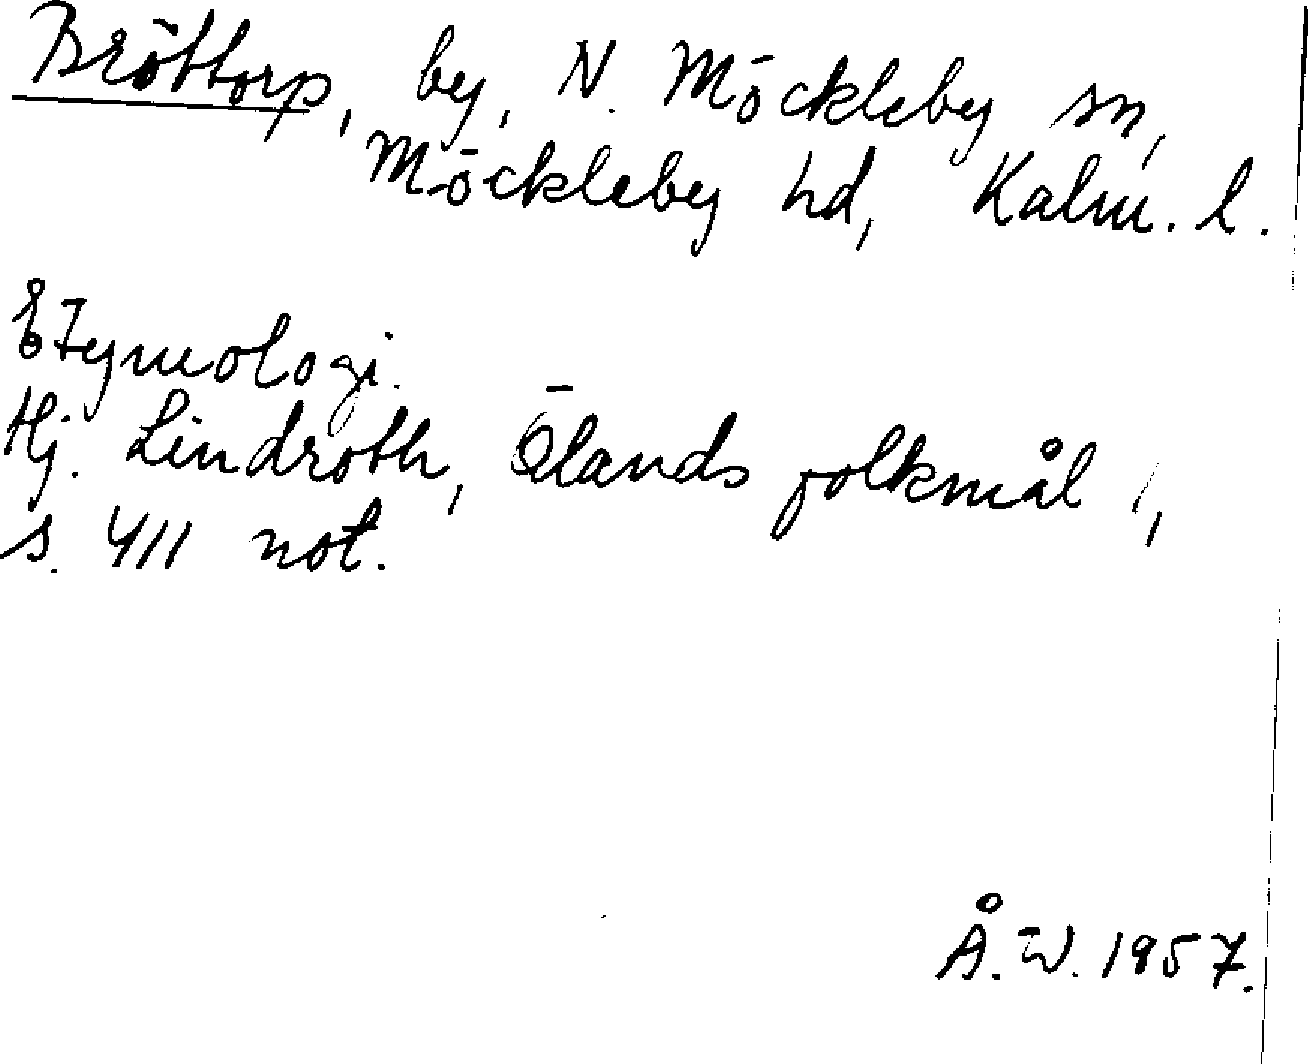 Bröttorp, by, N. Möckleby sn,
Möckleby hd, Kalm. l.
Etymologi.
Hj. Lindroth, Ölands folkmål 1,
s. 411 not.
Å.W. 1957.